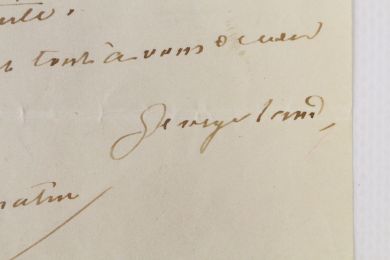 tout à vous de cœur
George Sand
matin